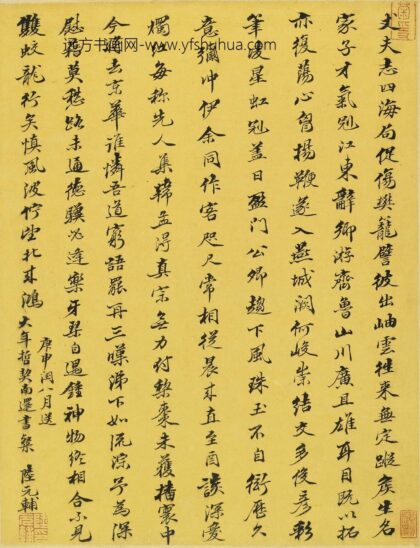 丈夫志四海局促傷樊籠譬彼出岫雲往來無定蹤侯生名
家子才氣冠江東辭鄉游齊魯山川廣且雄耳目既以拓
亦復蕩心胸揚鞭遂入燕城闕何峻崇結交多俊彥彩
筆凌星虹冠蓋日盈門公卿趨下風珠玉不自衒歷久
意彌沖伊余同作客咫尺常相從晨來直至酉談深愛
燭紅每稱先人集韓孟得真宗無力付棃棗未獲播寰中
今將去京華誰憐吾道窮語罷再三嘆涕下如流淙予為深
慰藉莫愁路未通德驥必逢樂牙琴自遇鍾神物終相合不見
雙蛟龍行矣慎風波佇望北來鴻
庚申閏八月送
大年哲契南還書 陸元輔
远方书画网 www.yfshuhua.com